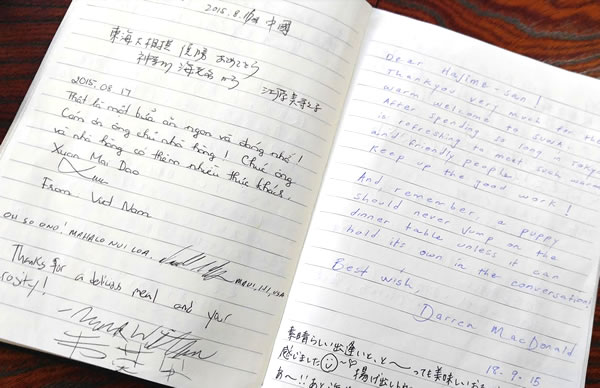 2015.8. 中國
東海大相模 優勝 おめでとう
神奈川 海老名 から
2015.08.17
Thật là một bữa ăn ngon và đáng nhớ!
Cám ơn ông chủ nhà hàng! Chúc ông
và nhà hàng có thêm nhiều thực khách.
Xuan Mai Dao
From Viet Nam
OH SO ONO! MAHALO NUI LOA.
MAUI, HI, USA
Thanks for a delicious meal and your
rosity!
Dear Hajime-san!
Thank you very much for the
warm welcome to
After spending so long in Tokyo
is refreshing to meet such warm
and friendly people.
Keep up the good work!
And, remember, a puppy
should never jump on the
dinner table unless it can
hold its own in the conversation!
Best wish,
Darren MacDonald
18. 9. 15
素晴らしい出逢いと、と〜っても美味しい
感じました
揚げ出し